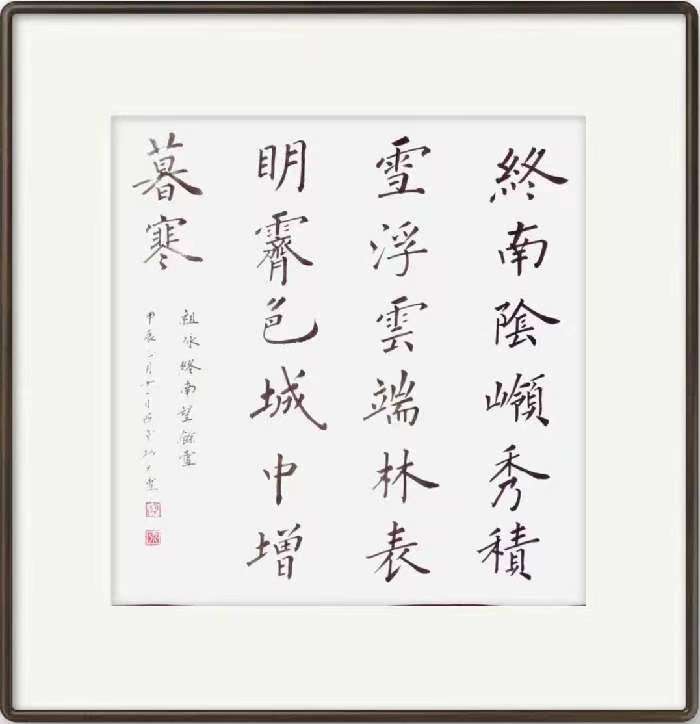 終南陰嶺秀積
雪浮雲端林表
明霽色城中增
暮寒
祖咏終南望餘雪
甲辰